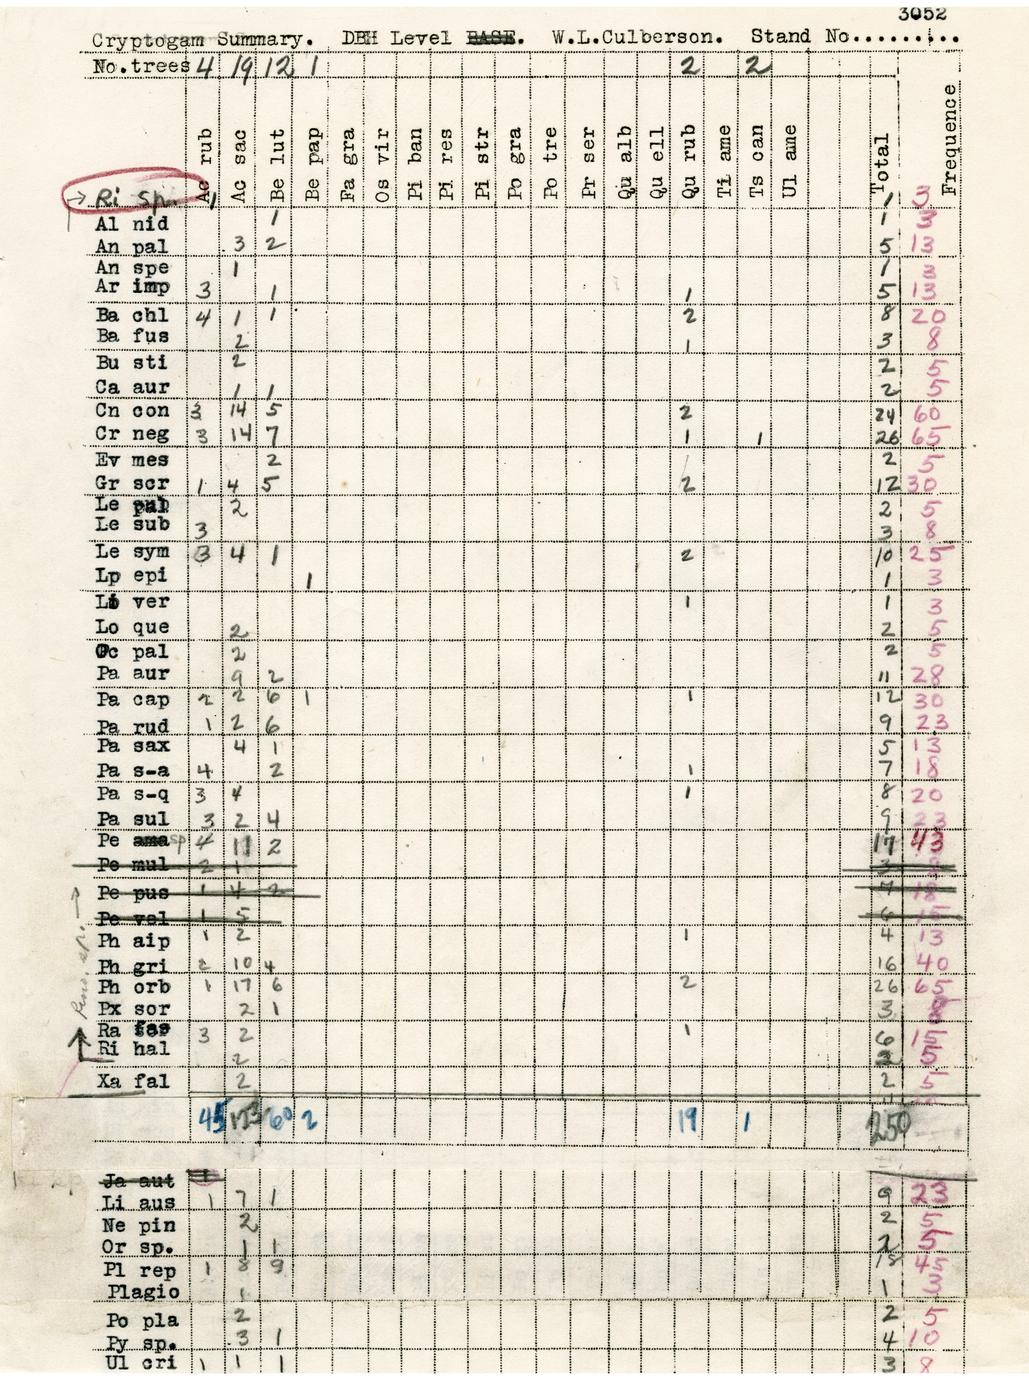 3052
Cryptogam Summary. DBH Level BASE. W.L.Culberson. Stand No.........
No.trees 4 19 12 1 2 2
Ac rub Ac sac Be lut Be pap Fa gra Os vir Pi ban Pi res Pi str Po gra Po tre Pr ser Qu alb Qu ell Qu rub Ti ame Ts can Ul ame Total Frequence
→ Ri sp. 1 1 3
Al nid 1 1 3
An pal 3 2 5 13
An spe 1 1 3
Ar imp 3 1 1 5 13
Ba chl 4 1 1 2 8 20
Ba fus 2 1 3 8
Bu sti 2 2 5
Ca aur 1 1 2 5
Cn con 3 14 5 2 24 60
Cr neg 3 14 7 1 1 26 65
Ev mes 2 2 5
Gr scr 1 4 5 2 12 30
Le 2 2 5
Le sub 3 3 8
Le sym 3 4 1 2 10 25
Lp epi 1 1 3
Li ver 1 1 3
Lo que 2 2 5
Oc pal 2 2 5
Pa aur 9 2 11 28
Pa cap 2 2 6 1 1 12 30
Pa rud 1 2 6 9 23
Pa sax 4 1 5 13
Pa s-a 4 2 1 7 18
Pa s-q 3 4 1 8 20
Pa sul 3 2 4 9 23
Pe ama sp 4 11 2 17 43
Pe mul 2 1 3 8
Pe pus 1 4 2 7 18
Pe vel 1 5 6 15
Ph aip 1 2 1 4 13
Ph gri 2 10 4 16 40
Ph orb 1 17 6 2 26 65
Px sor 2 1 3 8
Ra 3 2 1 6 15
Ri hal 2 2 5
Xa fal 2 2 5
45 173 60 2 19 1 250
Ja aut 1
Li aus 1 7 1 9 23
Ne pin 2 2 5
Or sp. 1 1 2 5
Pl rep 1 8 9 18 45
Plagio 1 1 3
Po pla 2 2 5
Py sp. 3 1 4 10
Ul cri 1 1 1 3 8